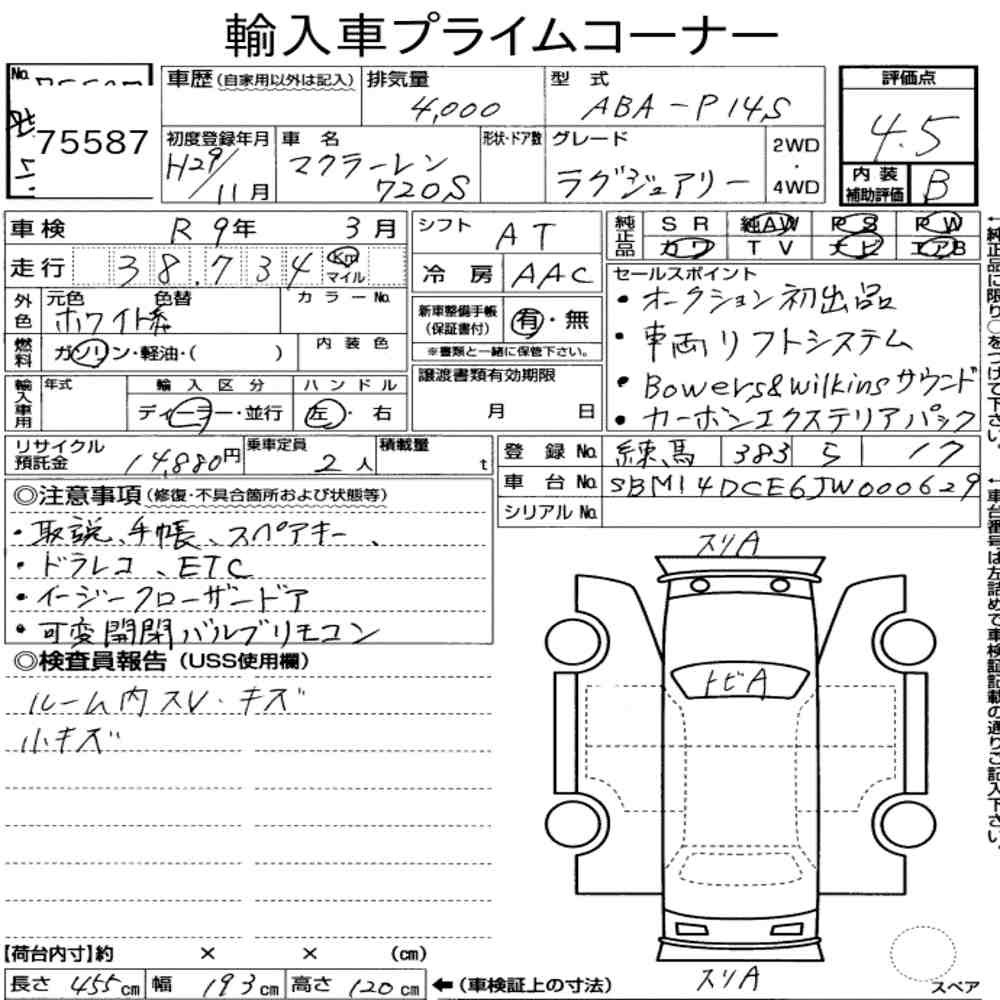 輸入車プライムコーナー
No.
75587
車歴(自家用以外は記入)
排気量
4,000
型 式
ABA-P14S
評価点
4.5
初度登録年月
H29/11月
車 名
マクラーレン
720S
形状・ドア数
グレード
ラグジュアリー
2WD
・
4WD
内 装
補助評価
B
車検 R9年 3月
シフト AT
純正品
SR 純AW PS PW
カワ TV ナビ エアB
走行 38,734 Km
マイル
冷 房 AAC
外色
元色 色替
ホワイト系
カラーNo.
新車整備手帳
(保証書付)
有・無
※書類と一緒に保管下さい。
燃料
ガソリン・軽油・( )
内 装 色
セールスポイント
・オークション初出品
・車両リフトシステム
・Bowers&Wilkinsサウンド
・カーボンエクステリアパック
輸入車用
年式
輸 入 区 分
ディーラー・並行
ハ ン ド ル
左・右
譲渡書類有効期限
月 日
リサイクル
預託金
14,880円
乗車定員
2人
積載量
t
登 録 No. 練馬 383 ら 17
車 台 No. SBM14DCE6JW000629
シリアル No.
◎注意事項(修復・不具合箇所および状態等)
・取説、手帳、スペアキー、
・ドラレコ、ETC
・イージークローザードア
・可変開閉バルブリモコン
◎検査員報告(USS使用欄)
ルーム内スレ・キズ
小キズ
スリA
トビA
スリA
スペア
【荷台内寸】約 × × (cm)
長さ 455cm 幅 193cm 高さ 120cm ←(車検証上の寸法)
←純正品に限り○をつけて下さい。
←車台番号は左詰めで車検証記載の通りご記入下さい。